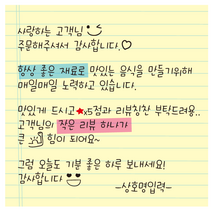 사랑하는 고객님
주문해주셔서 감사합니다.
항상 좋은 재료로 맛있는 음식을 만들기위해
매일매일 노력하고 있습니다.
맛있게 드시고★x5점과 리뷰칭찬 부탁드려용..
고객님의 작은 리뷰 하나가
큰 힘이 되어요~
그럼 오늘도 기분 좋은 하루 보내세요!
감사합니다
-상호명입력-